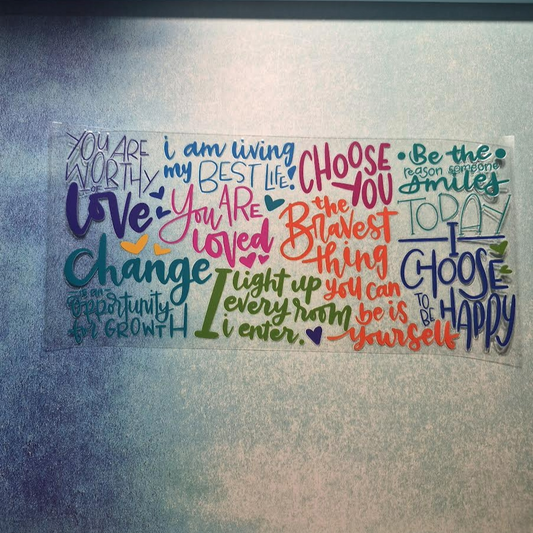 YOU ARE
WORTHY
OF
love
i am living
my BEST LIFE!
CHOOSE
YOU
Be the
reason someone
smiles
TODAY
You ARE
loved
the
Bravest
thing
you can
be is
yourself
Change
is an
opportunity
for GROWTH
I light up
every room
i enter.
I
CHOOSE
TO BE
HAPPY